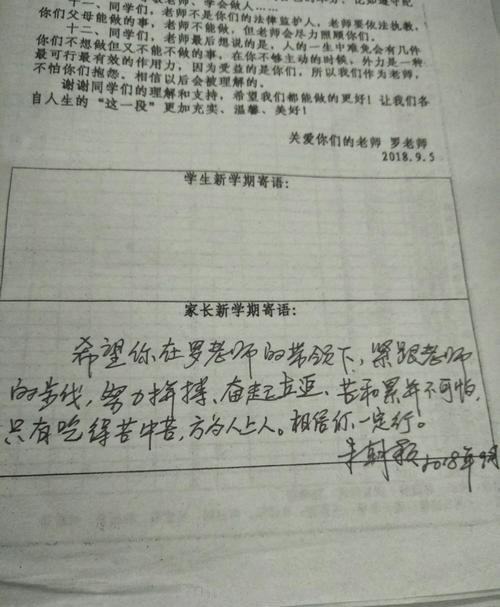 老师、学会做人……
十一、同学们，老师不是你们的法律监护人，老师要依法执教，
你们父母能做的事，老师不能做，但老师会尽力照顾你们。
十二、同学们，老师最后想说的是，人的一生中难免会有几件
你们不想做但又不能不做的事，在你不够主动的时候，外力是一种
最可行最有效的作用力，因为受益的是你们，所以我们作为老师，
不怕你们抱怨。相信以后会被理解的。
谢谢同学们的理解和支持，希望我们都能做的更好！让我们各
自人生的“这一段”更加充实、温馨、美好！
关爱你们的老师 罗老师
2018.9.5
学生新学期寄语：
家长新学期寄语：
希望你在罗老师的带领下，紧跟老师
的步伐，努力拼搏、奋起直追、苦和累并不可怕，
只有吃得苦中苦，方为人上人。相信你一定行。
2018年9月